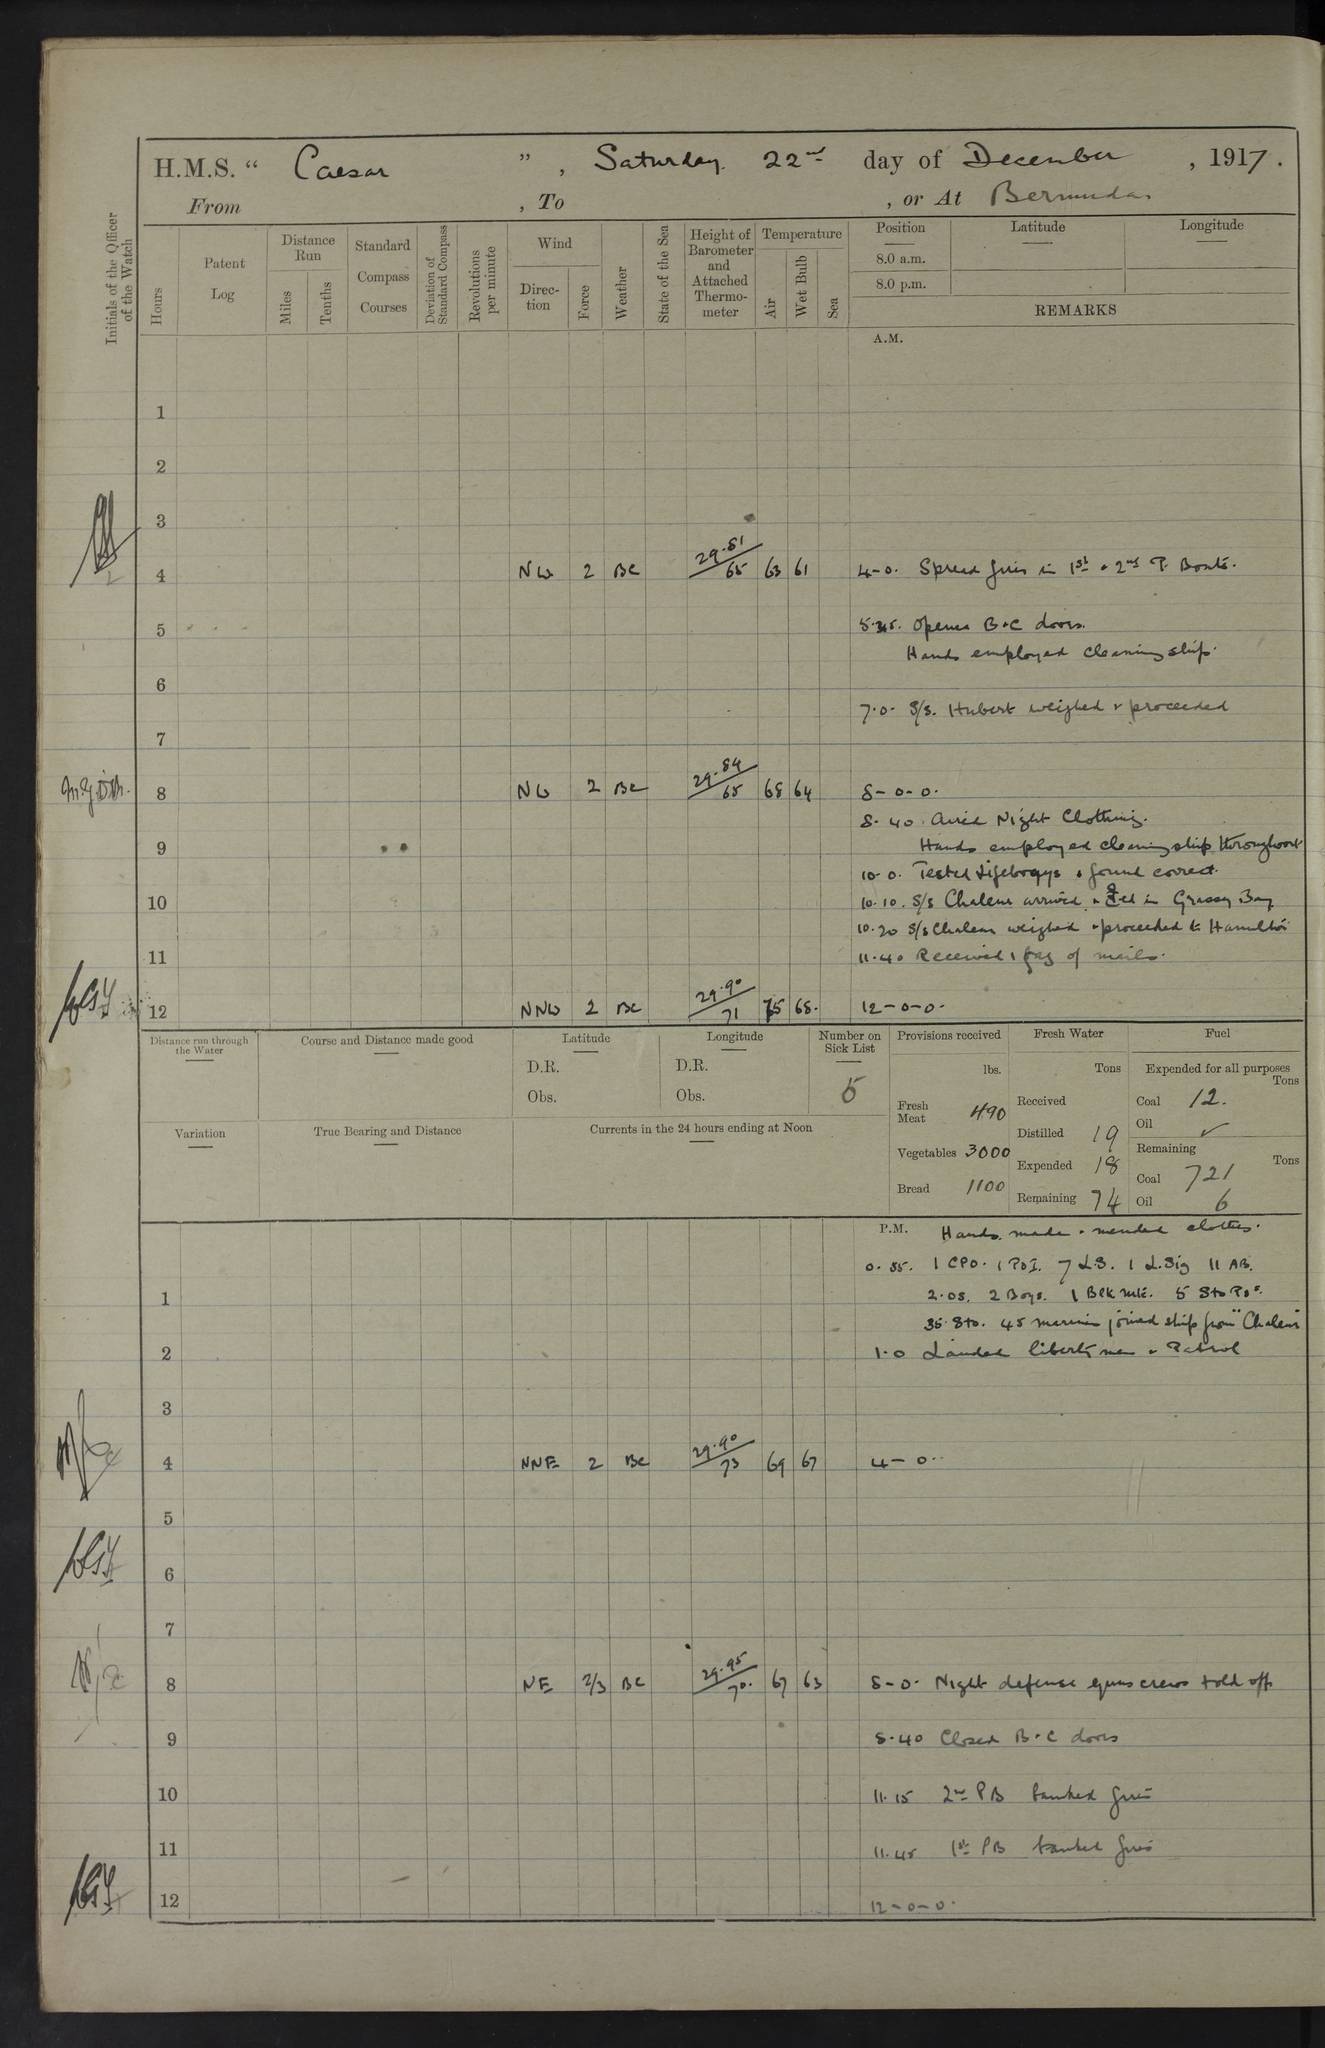 H.M.S. " Caesar ", Saturday 22nd day of December, 1917.
From , To , or At Bermudas
Initials of the Officer of the Watch
Hours
Patent Log
Distance Run
Miles
Tenths
Standard Compass Courses
Deviation of Standard Compass
Revolutions per minute
Wind
Direction
Force
Weather
State of the Sea
Height of Barometer and Attached Thermometer
Temperature
Air
Wet Bulb
Sea
Position
8.0 a.m.
8.0 p.m.
Latitude
Longitude
REMARKS
A.M.
1
2
3
4 NW 2 BC 29.81/65 63 61 4-0. Spread fires in 1st & 2nd P. Boats.
5 5.45. Opened B.C doors.
Hands employed cleaning ship.
6
7.0. S/s. Hubert weighed & proceeded
7
8 NW 2 BC 29.84/65 68 64 8-0-0.
8.40. Aired Night Clothing.
9 Hands employed cleaning ship throughout
10.0. Tested Lifebuoys & found correct.
10 10.10. S/s Chaleur arrived & ed in Grassy Bay
10.20 S/s Chaleur weighed & proceeded to Hamilton
11 11.40 Received 1 bag of mails.
12 NNW 2 BC 29.90/71 75 68. 12-0-0.
Distance run through the Water
Course and Distance made good
Latitude
D.R.
Obs.
Longitude
D.R.
Obs.
Number on Sick List
5
Provisions received
lbs.
Fresh Meat 490
Vegetables 3000
Bread 1100
Fresh Water
Tons
Received
Distilled 19
Expended 18
Remaining 74
Fuel
Expended for all purposes
Tons
Coal 12.
Oil ✓
Remaining
Tons
Coal 721
Oil 6
Variation
True Bearing and Distance
Currents in the 24 hours ending at Noon
P.M. Hands made & mended clothes.
0.55. 1 CPO. 1 PO I. 7 L.S. 1 L.Sig 11 AB.
1 2.OS. 2 Boys. 1 Blk mte. 5 Sto POs.
35 Sto. 45 marines joined ship from "Chaleur"
2 1.0 Landed liberty men & Patrol
3
4 NNE 2 BC 29.90/73 69 67 4-0.
5
6
7
8 NE 2/3 BC 29.95/70. 67 63 8-0. Night defense guns crews told off
9 8.40 Closed B.C doors
10 11.15 2nd PB banked fires
11 11.45 1st PB banked fires
12 12-0-0.